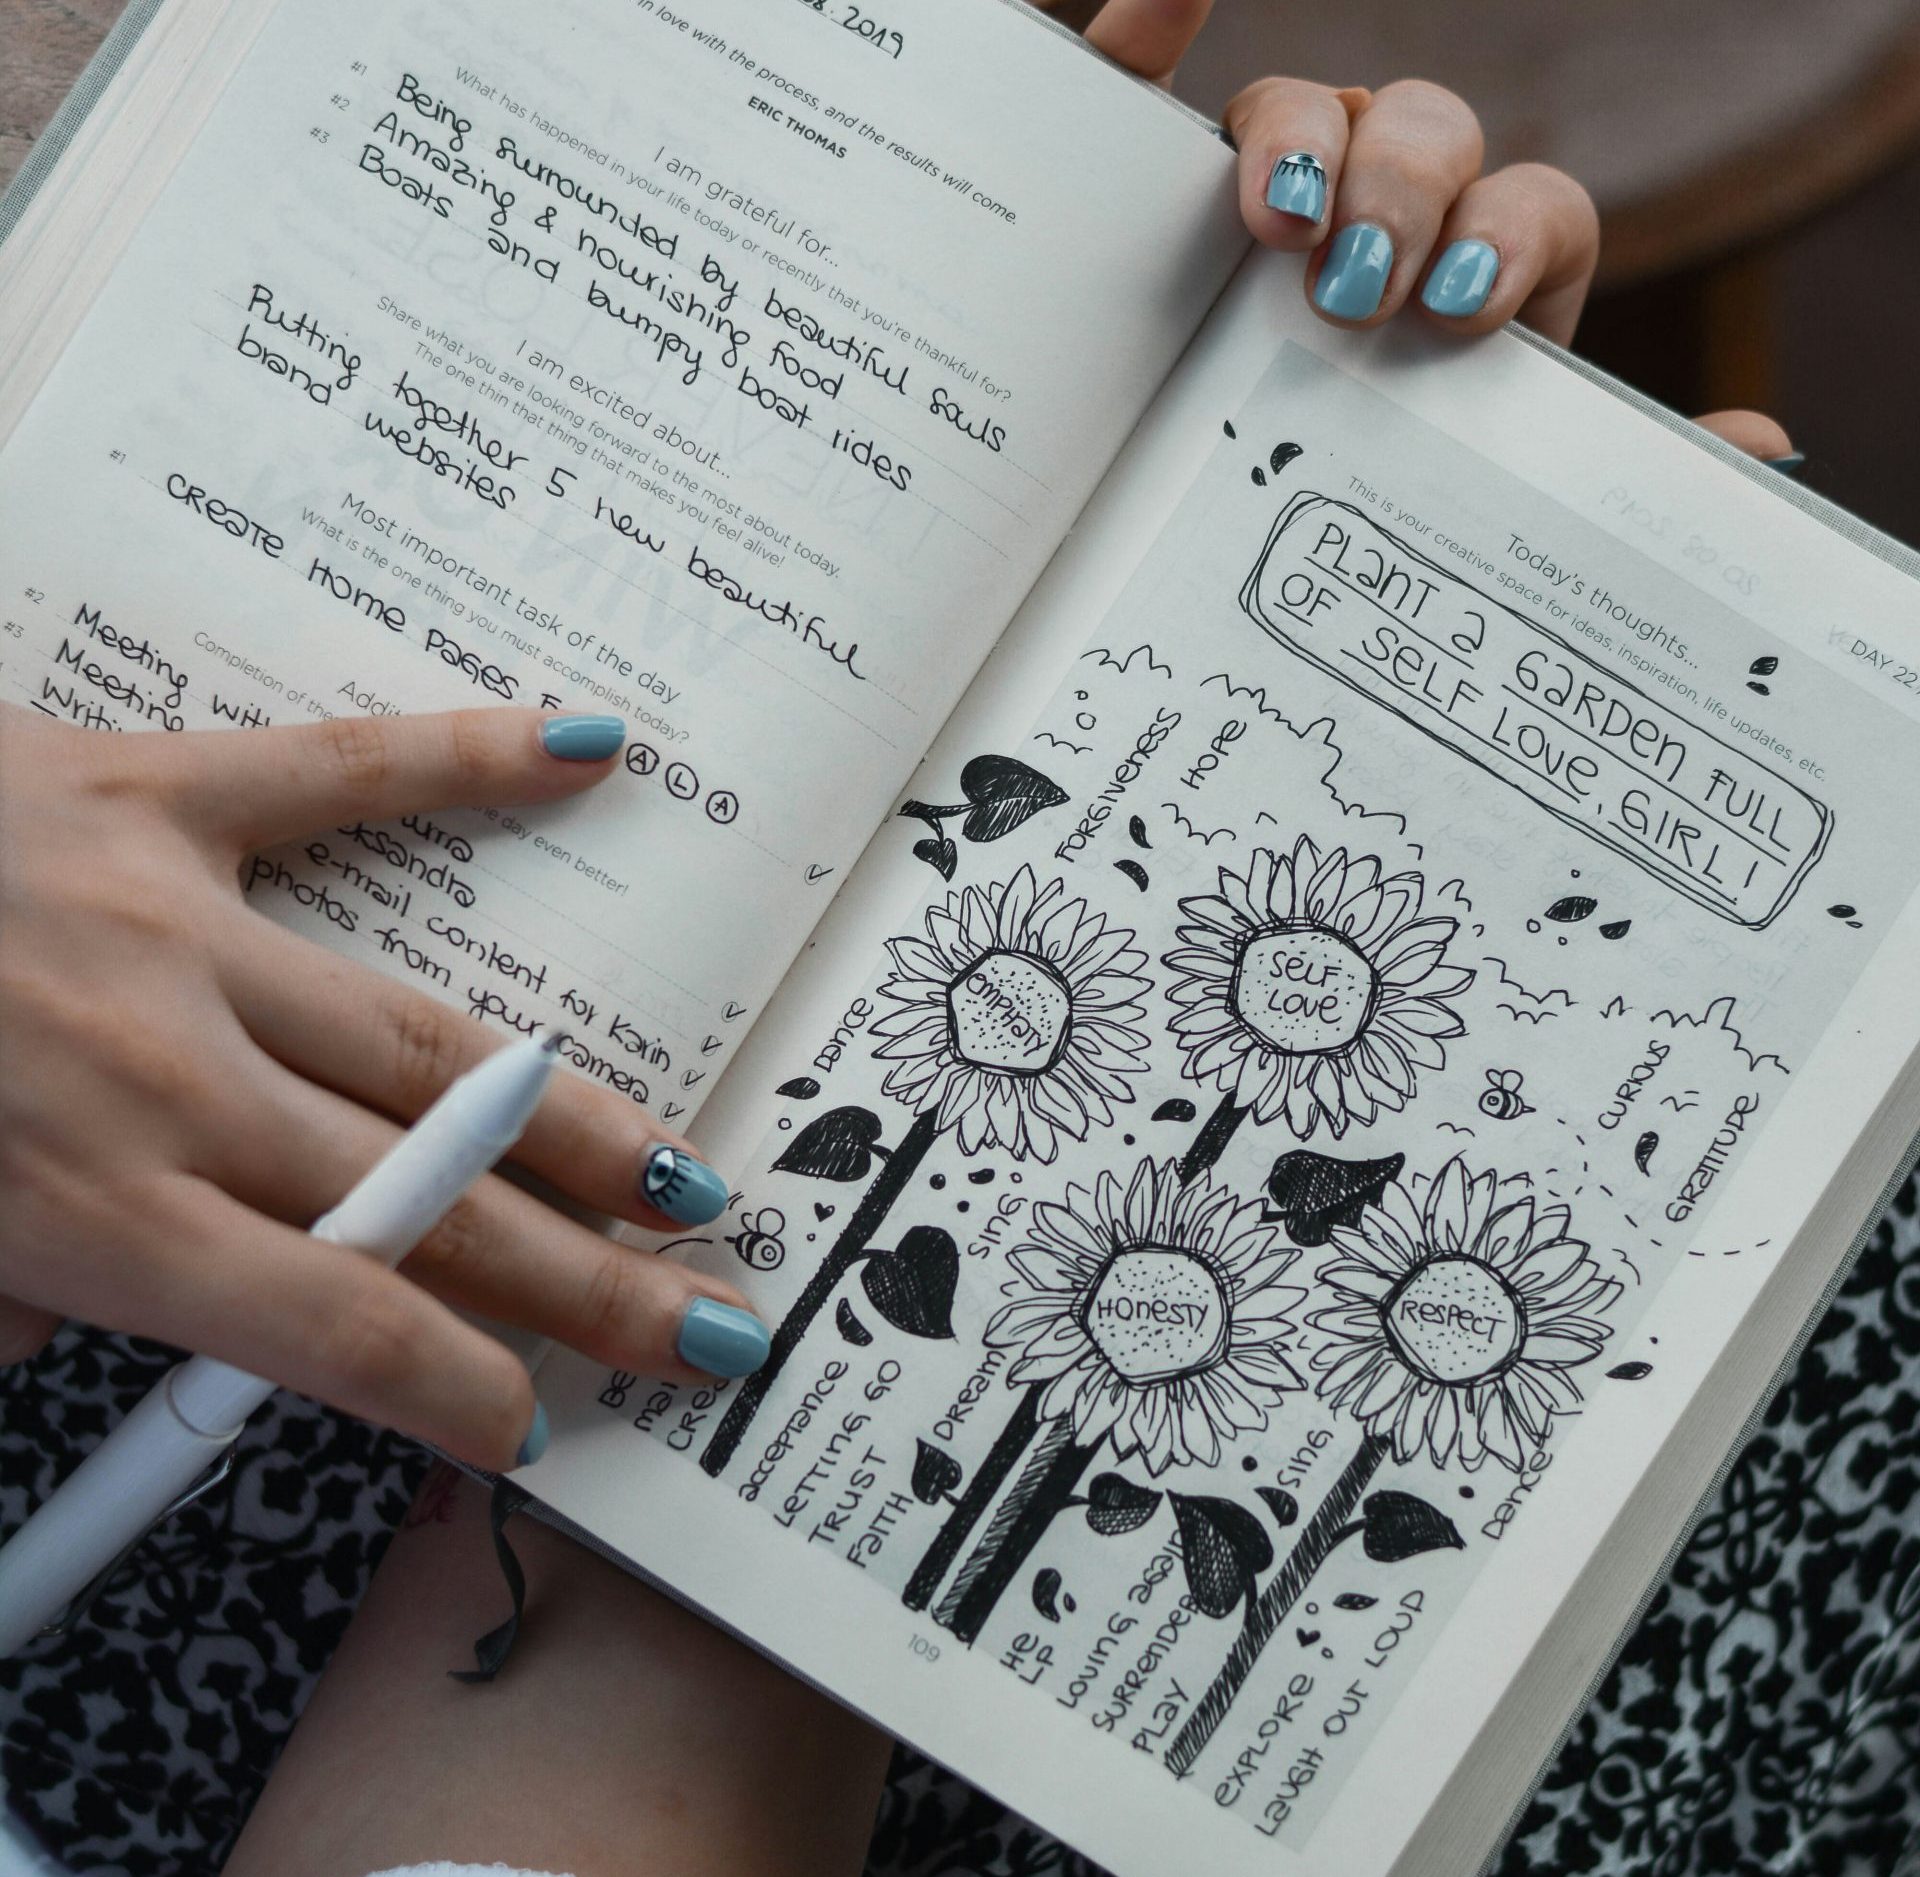 08.2019
in love with the process, and the results will come.
ERIC THOMAS
I am grateful for...
What has happened in your life today or recently that you're thankful for?
#1 Being surrounded by beautiful souls
#2 Amazing & nourishing food
#3 Boats and bumpy boat rides
I am excited about...
Share what you are looking forward to the most about today.
The one thin that thing that makes you feel alive!
Putting together 5 new beautiful
brand websites
Most important task of the day
What is the one thing you must accomplish today?
#1 CREATE HOME PAGES A L A
Completion of the day even better!
#2 Meeting with
#3 Meeting
e-mail content for Karin
photos from your camera
DAY 22
Today's thoughts...
This is your creative space for ideas, inspiration, life updates, etc.
PLANT A GARDEN FULL
OF SELF LOVE, GIRL!
FORGIVENESS
HOPE
EMPHATY
SELF
LOVE
DANCE
CURIOUS
GRATITUDE
SING
HONESTY
RESPECT
DREAM
ACCEPTANCE
LETTING GO
TRUST
FAITH
SING
DANCE
HE
LP
LOVING AGAIN
SURRENDER
PLAY
EXPLORE
LAUGH OUT LOUD
109